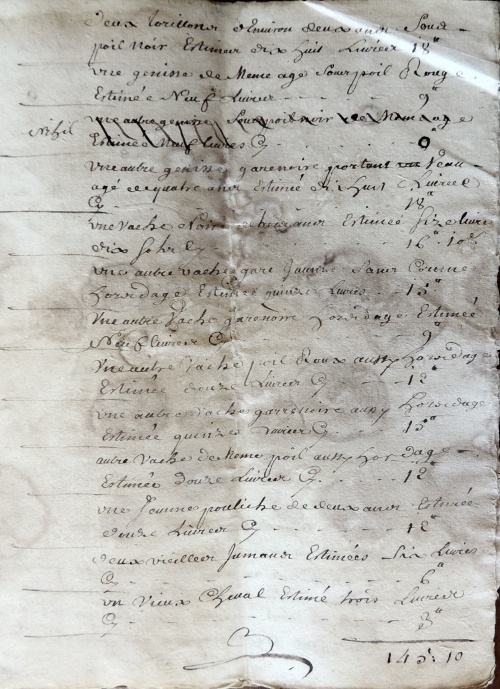 deux torillons d'Environ deux ans sous
poil Noir Estimés dix huit Livres 18"
une genisse de Meme age sous poil Rouge
Estimée Neuf Livres 9"
Nihil une autre genisse sous poil noir de Meme age
Estimée Neuf Livres Cy 0"
une autre genisse garenoire portant un Veau
agé de quatre ans Estimée dix huit Livres
Cy 18"
une Vache Noire
Estimée Seize livres
dix Sols Cy 16" 10
une autre vache gare Jaune sans Corne
hors d'age Estimée quinze Livres 15"
une autre Vache garenoire hors d'age Estimée
Neuf Livres Cy 9"
une autre Vache poil Roux aussy hors d'age
Estimée douze Livres Cy 12"
une autre vache garrenoire aussy hors d'age
Estimée quinzes Livres Cy 15"
autre Vache de Meme poil aussy hors d'age
Estimée douze Livres Cy 12"
une Jeunne pouliche de deux ans Estimée
douze Livres Cy 12"
deux vieilles Jumans Estimées Six Livres
Cy 6"
un Vieux Cheval Estimé trois Livres
Cy 3"
145" 10